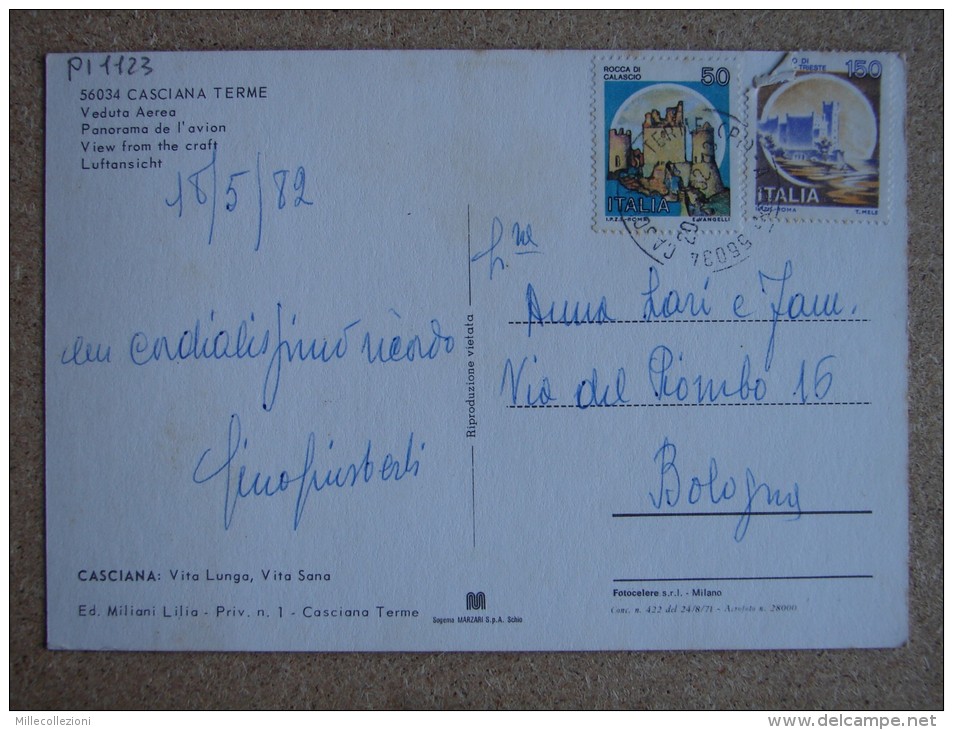 PI 1123
56034 CASCIANA TERME
Veduta Aerea
Panorama de l'avion
View from the craft
Luftansicht
18/5/82
cordialissimo ricordo
Gino Giusberti
CASCIANA: Vita Lunga, Vita Sana
Ed. Miliani Lilia - Priv. n. 1 - Casciana Terme
Riproduzione vietata
Sogema MARZARI S.p.A. Schio
ROCCA DI CALASCIO
50
ITALIA
I.P.Z.S.-ROMA E.VANGELLI
150
O DI
TRIESTE
ITALIA
ROMA T. MELE
56034
Anna Lari e Fam.
Via del Piombo 16
Bologna
Fotocelere s.r.l. - Milano
Conc. n. 422 del 24/8/71 - Aerofoto n. 28000
Millecollezioni
http://www.delcampe.net